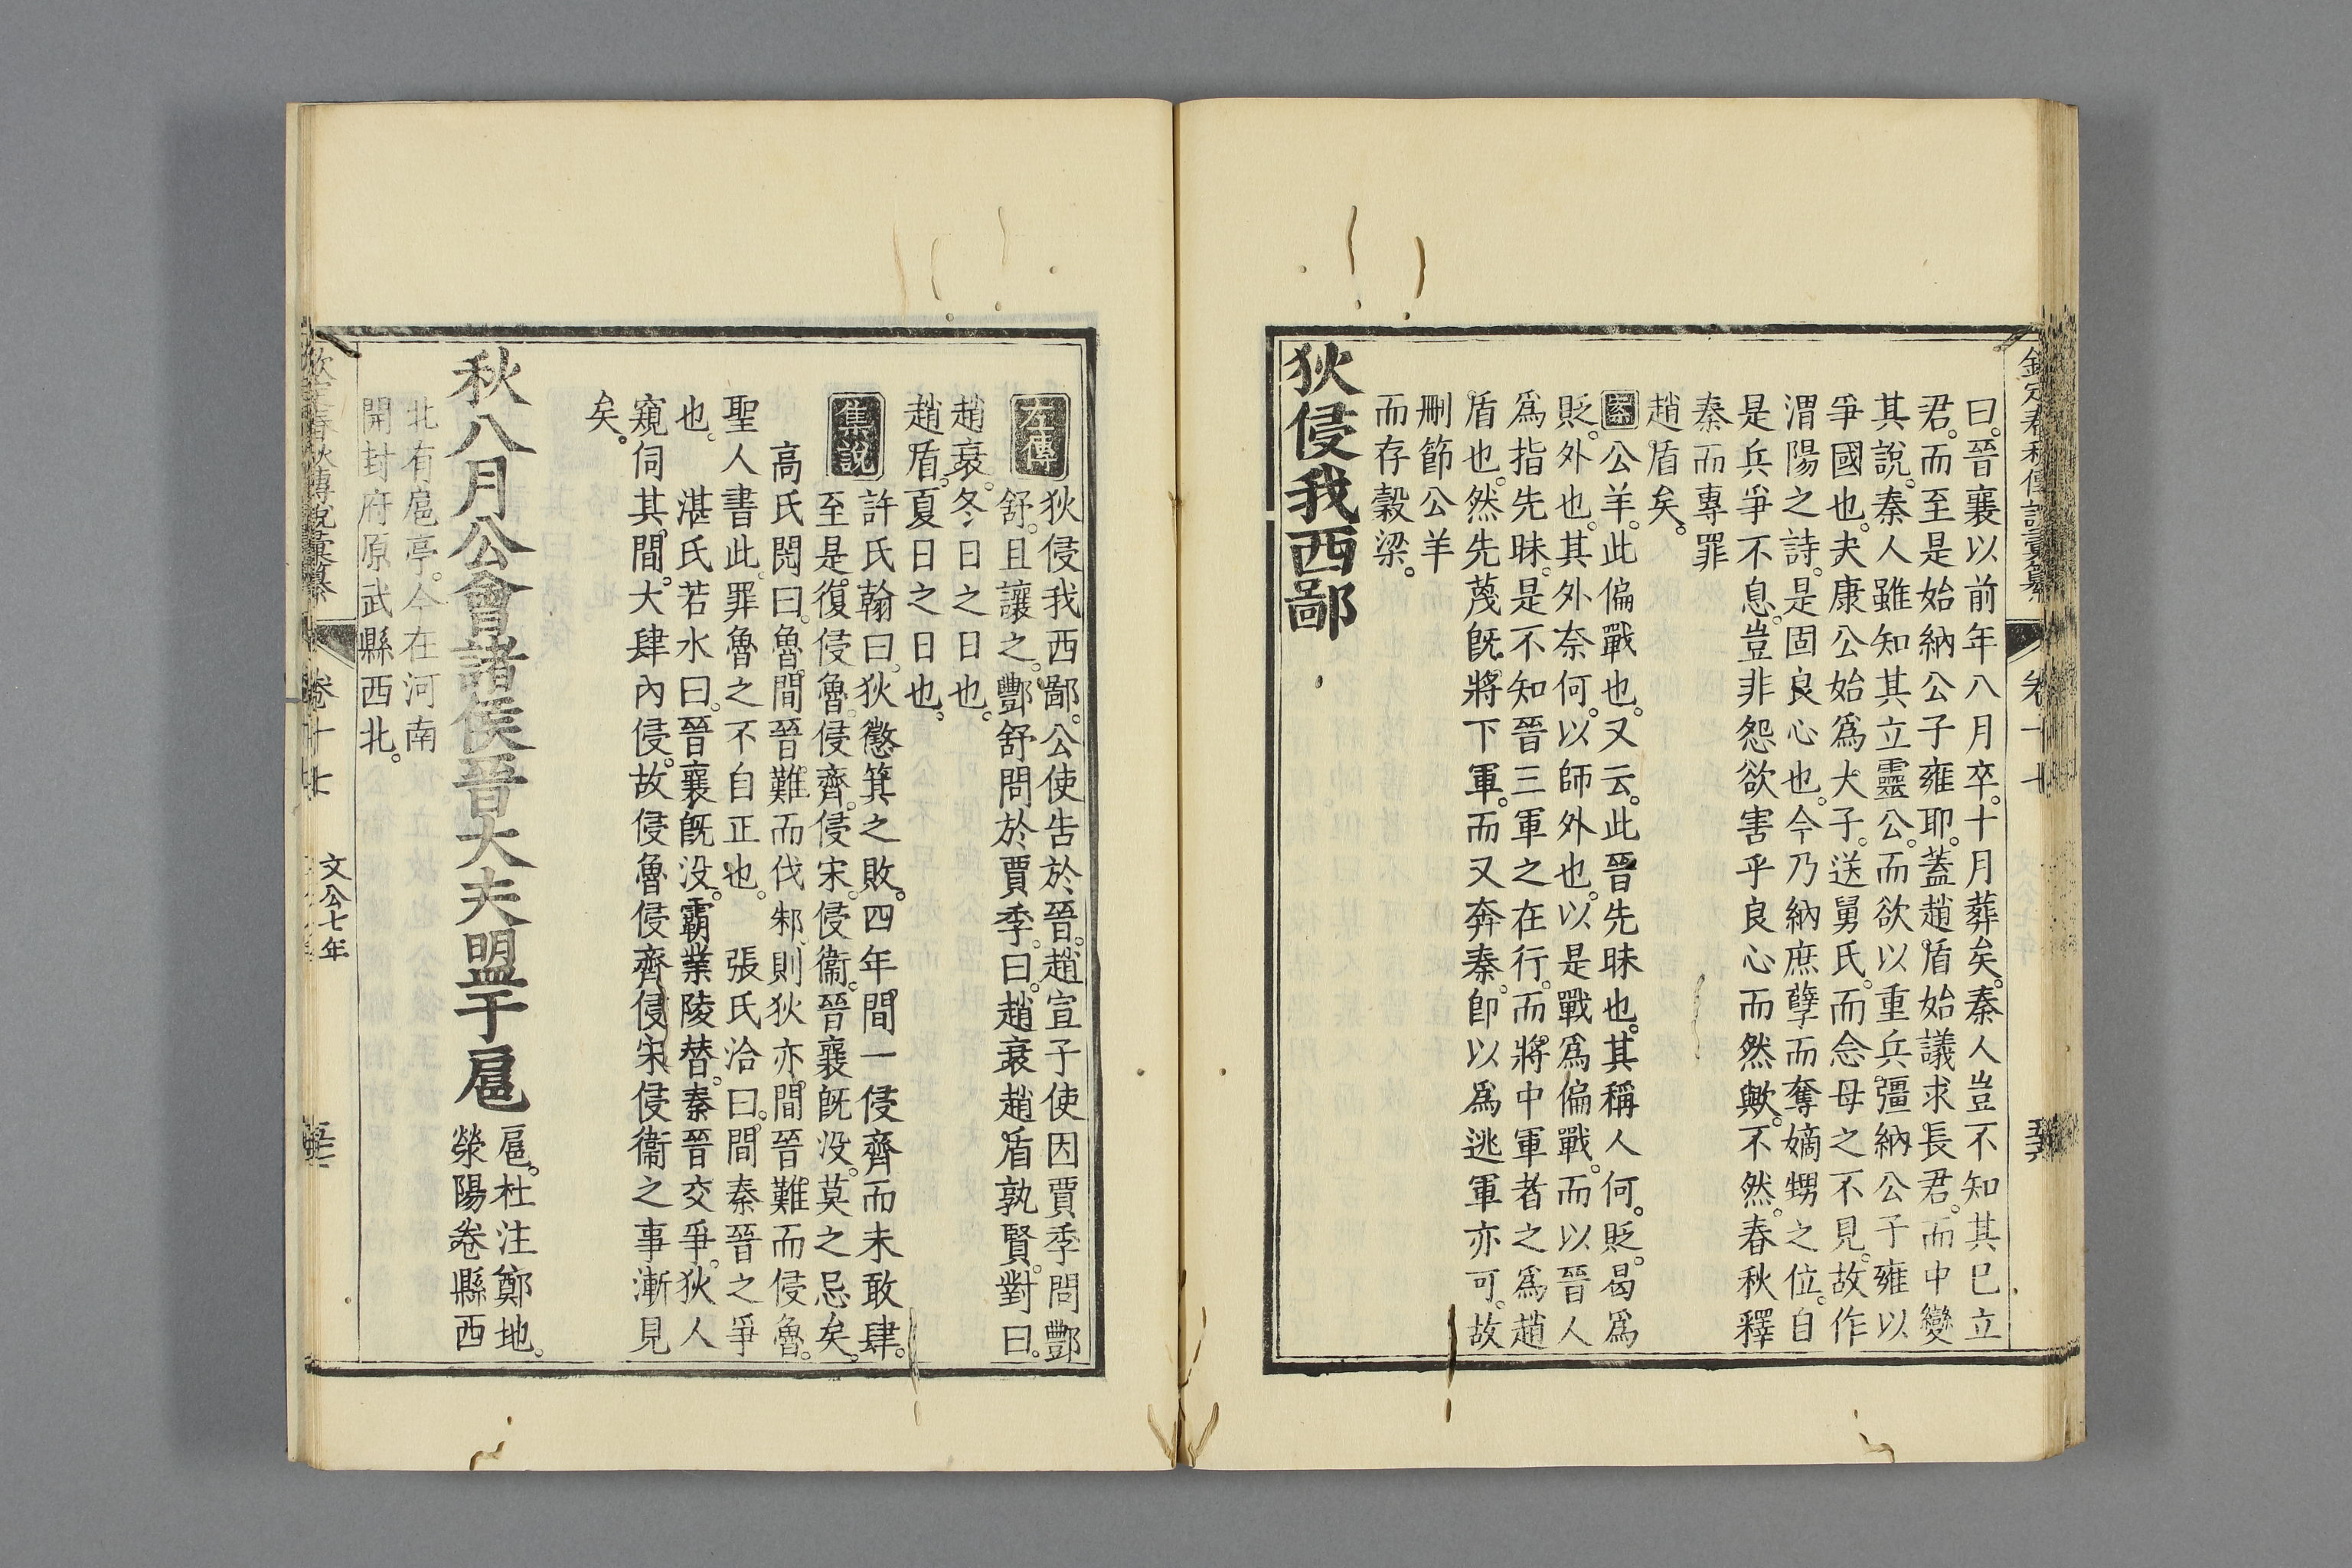 曰。晉襄以前年八月卒。十月葬矣。秦人豈不知其已立
君。而至是始納公子雍耶。蓋趙盾始議求長君。而中變
其說。秦人雖知其立靈公。而欲以重兵彊納公子雍以
爭國也。夫康公始爲大子。送舅氏。而念母之不見。故作
渭陽之詩。是固良心也。今乃納庶孽而奪嫡甥之位。自
是兵爭不息。豈非怨欲害乎良心而然歟。不然。春秋釋
秦而專罪
趙盾矣。
案公羊。此偏戰也。又云。此晉先昧也。其稱人何。貶。曷爲
貶。外也。其外奈何。以師外也。以是戰爲偏戰。而以晉人
爲指先昧。是不知晉三軍之在行。而將中軍者之爲趙
盾也。然先蔑旣將下軍。而又奔秦。卽以爲逃軍亦可。故
刪節公羊
而存穀梁。
狄侵我西鄙
左傳
狄侵我西鄙。公使告於晉。趙宣子使因賈季問酆
舒。且讓之。酆舒問於賈季。曰。趙衰趙盾孰賢。對曰。
趙衰。冬日之日也。
趙盾。夏日之日也。
集說
許氏翰曰。狄懲箕之敗。四年間一侵齊而未敢肆。
至是。復侵魯侵齊。侵宋。侵衞。晉襄旣没。莫之忌矣。
高氏閌曰。魯間晉難而伐邾。則狄亦間晉難而侵魯。
聖人書此。罪魯之不自正也。張氏洽曰。間秦晉之爭
也。湛氏若水曰。晉襄旣没。霸業陵替。秦晉交爭。狄人
窺伺其間。大肆內侵。故侵魯侵齊侵宋侵衞之事漸見
矣。
秋八月公會諸侯晉大夫盟于扈
扈。杜注鄭地。
滎陽卷縣西
北有扈亭。今在河南
開封府原武縣西北。
文公七年